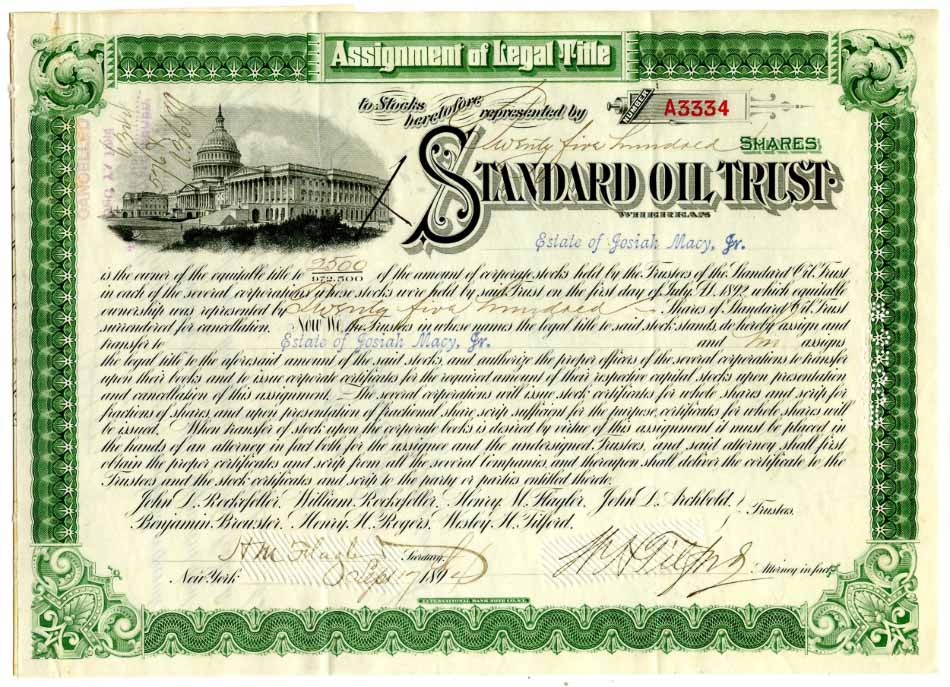 Assignment of Legal Title
to Stocks heretofore represented by
NUMBER A3334
Twenty five hundred SHARES
STANDARD OIL TRUST.
WHEREAS
Estate of Josiah Macy, Jr.
is the owner of the equitable title to 2500/972,500 of the amount of corporate stocks held by the Trustees of the Standard Oil Trust
in each of the several corporations whose stocks were held by said Trust on the first day of July A.D. 1892, which equitable
ownership was represented by Twenty five hundred Shares of Standard Oil Trust
surrendered for cancellation. Now We the Trustees in whose names the legal title to said stock stands do hereby assign and
transfer to Estate of Josiah Macy, Jr. and assigns
the legal title to the aforesaid amount of the said stocks and authorize the proper officers of the several corporations to transfer
upon their books and to issue corporate certificates for the required amount of their respective capital stocks upon presentation
and cancellation of this assignment. The several corporations will issue stock certificates for whole shares and scrip for
fractions of shares, and upon presentation of fractional share scrip sufficient for the purpose, certificates for whole shares will
be issued. When transfer of stock upon the corporate books is desired by virtue of this assignment it must be placed in
the hands of an attorney in fact both for the assignee and the undersigned Trustees, and said attorney shall first
obtain the proper certificates and scrip from all the several Companies, and thereupon shall deliver the certificate to the
Trustees and the stock certificates and scrip to the party or parties entitled thereto.
John D. Rockefeller, William Rockefeller, Henry M. Flagler, John D. Archbold,
Benjamin Brewster, Henry H. Rogers, Wesley H. Tilford, Trustees.
H M Flagler Secretary.
W H Tilford Attorney in fact.
New York Sept 17 1894
INTERNATIONAL BANK NOTE CO. N.Y.
CANCELLED